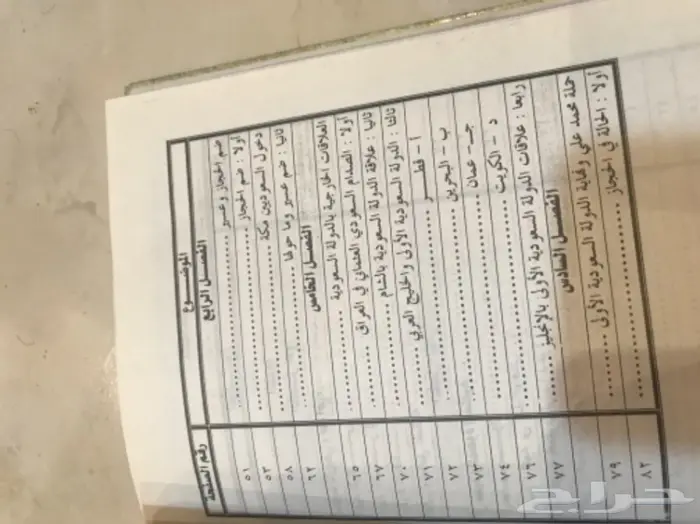 الموضــوع رقم الصفحة
الفصل الرابع
ضم الحجاز وعسير .......... ٥١
أولا : ضم الحجاز .......... ٥٣
دخول السعوديين مكة .......... ٥٨
ثانيا : ضم عسير وما حولها .......... ٦٢
الفصل الخامس
العلاقات الخارجية بالدولة السعودية .......... ٦٥
أولا : الصدام السعودي العثماني في العراق .......... ٦٧
ثانيا : علاقة الدولة السعودية بالشام .......... ٧٠
ثالثا : الدولة السعودية الأولى والخليج العربي .......... ٧١
أ - قطــر .......... ٧٢
ب - البحرين .......... ٧٣
جـ - عمان .......... ٧٤
د - الكويت .......... ٧٦
رابعا : علاقات الدولة السعودية الأولى بالإنجليز .......... ٧٧
الفصل السادس
حملة محمد علي ونهاية الدولة السعودية الأولى .......... ٧٩
أولا : الحالة في الحجاز .......... ٨٢
حراج